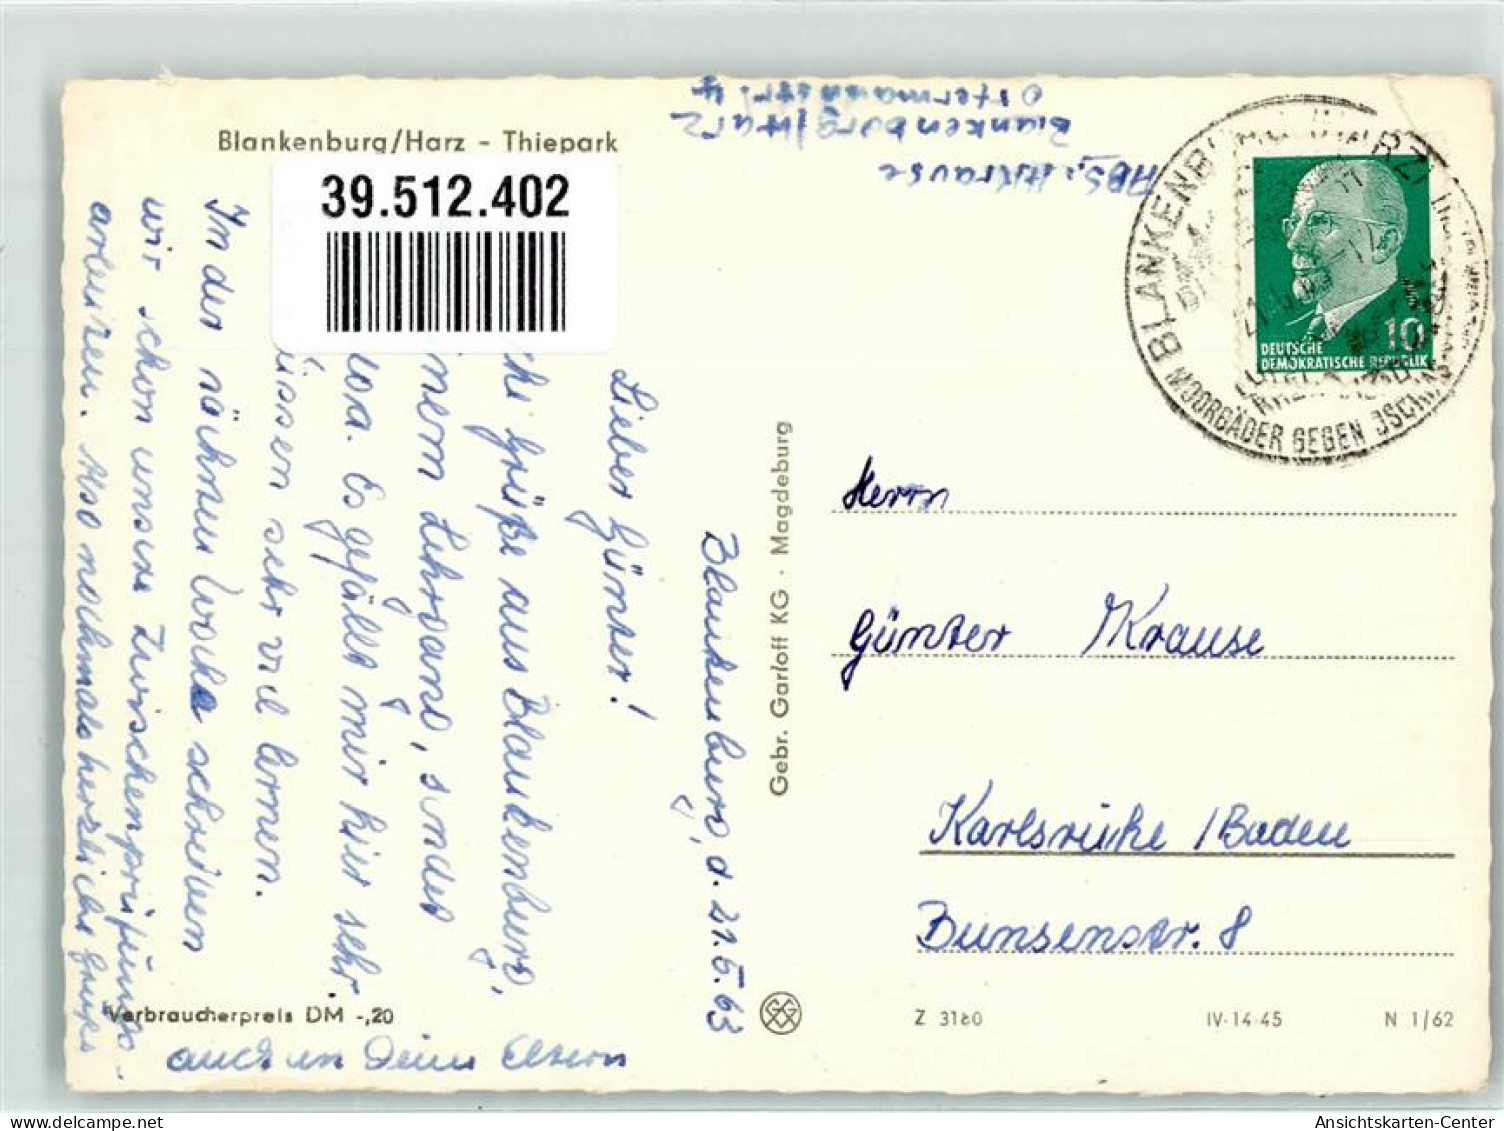 Blankenburg/Harz - Thiepark
39.512.402
Abs.: H. Krause
Blankenburg/Harz
Ostermannstr. 4
Blankenburg, d. 21.5.63
Lieber Günter!
che Grüße aus Blankenburg,
nem Lehrgang, sendet
Es gefällt mir hier sehr
üssen sehr viel lernen.
In der nächsten Woche schreiben
wir schon unsere Zwischenprüfungs-
arbeiten. Also nochmals herzliche Grüße
auch an Deine Eltern
Verbraucherpreis DM -,20
Gebr. Garloff KG · Magdeburg
BLANKENBURG (HARZ)
MOORBÄDER GEGEN ISCHIAS
10
DEUTSCHE
DEMOKRATISCHE REPUBLIK
Herrn
Günter Krause
Karlsruhe /Baden
Bunsenstr. 8
Z 3180 IV-14-45 N 1/62
Ansichtskarten-Center